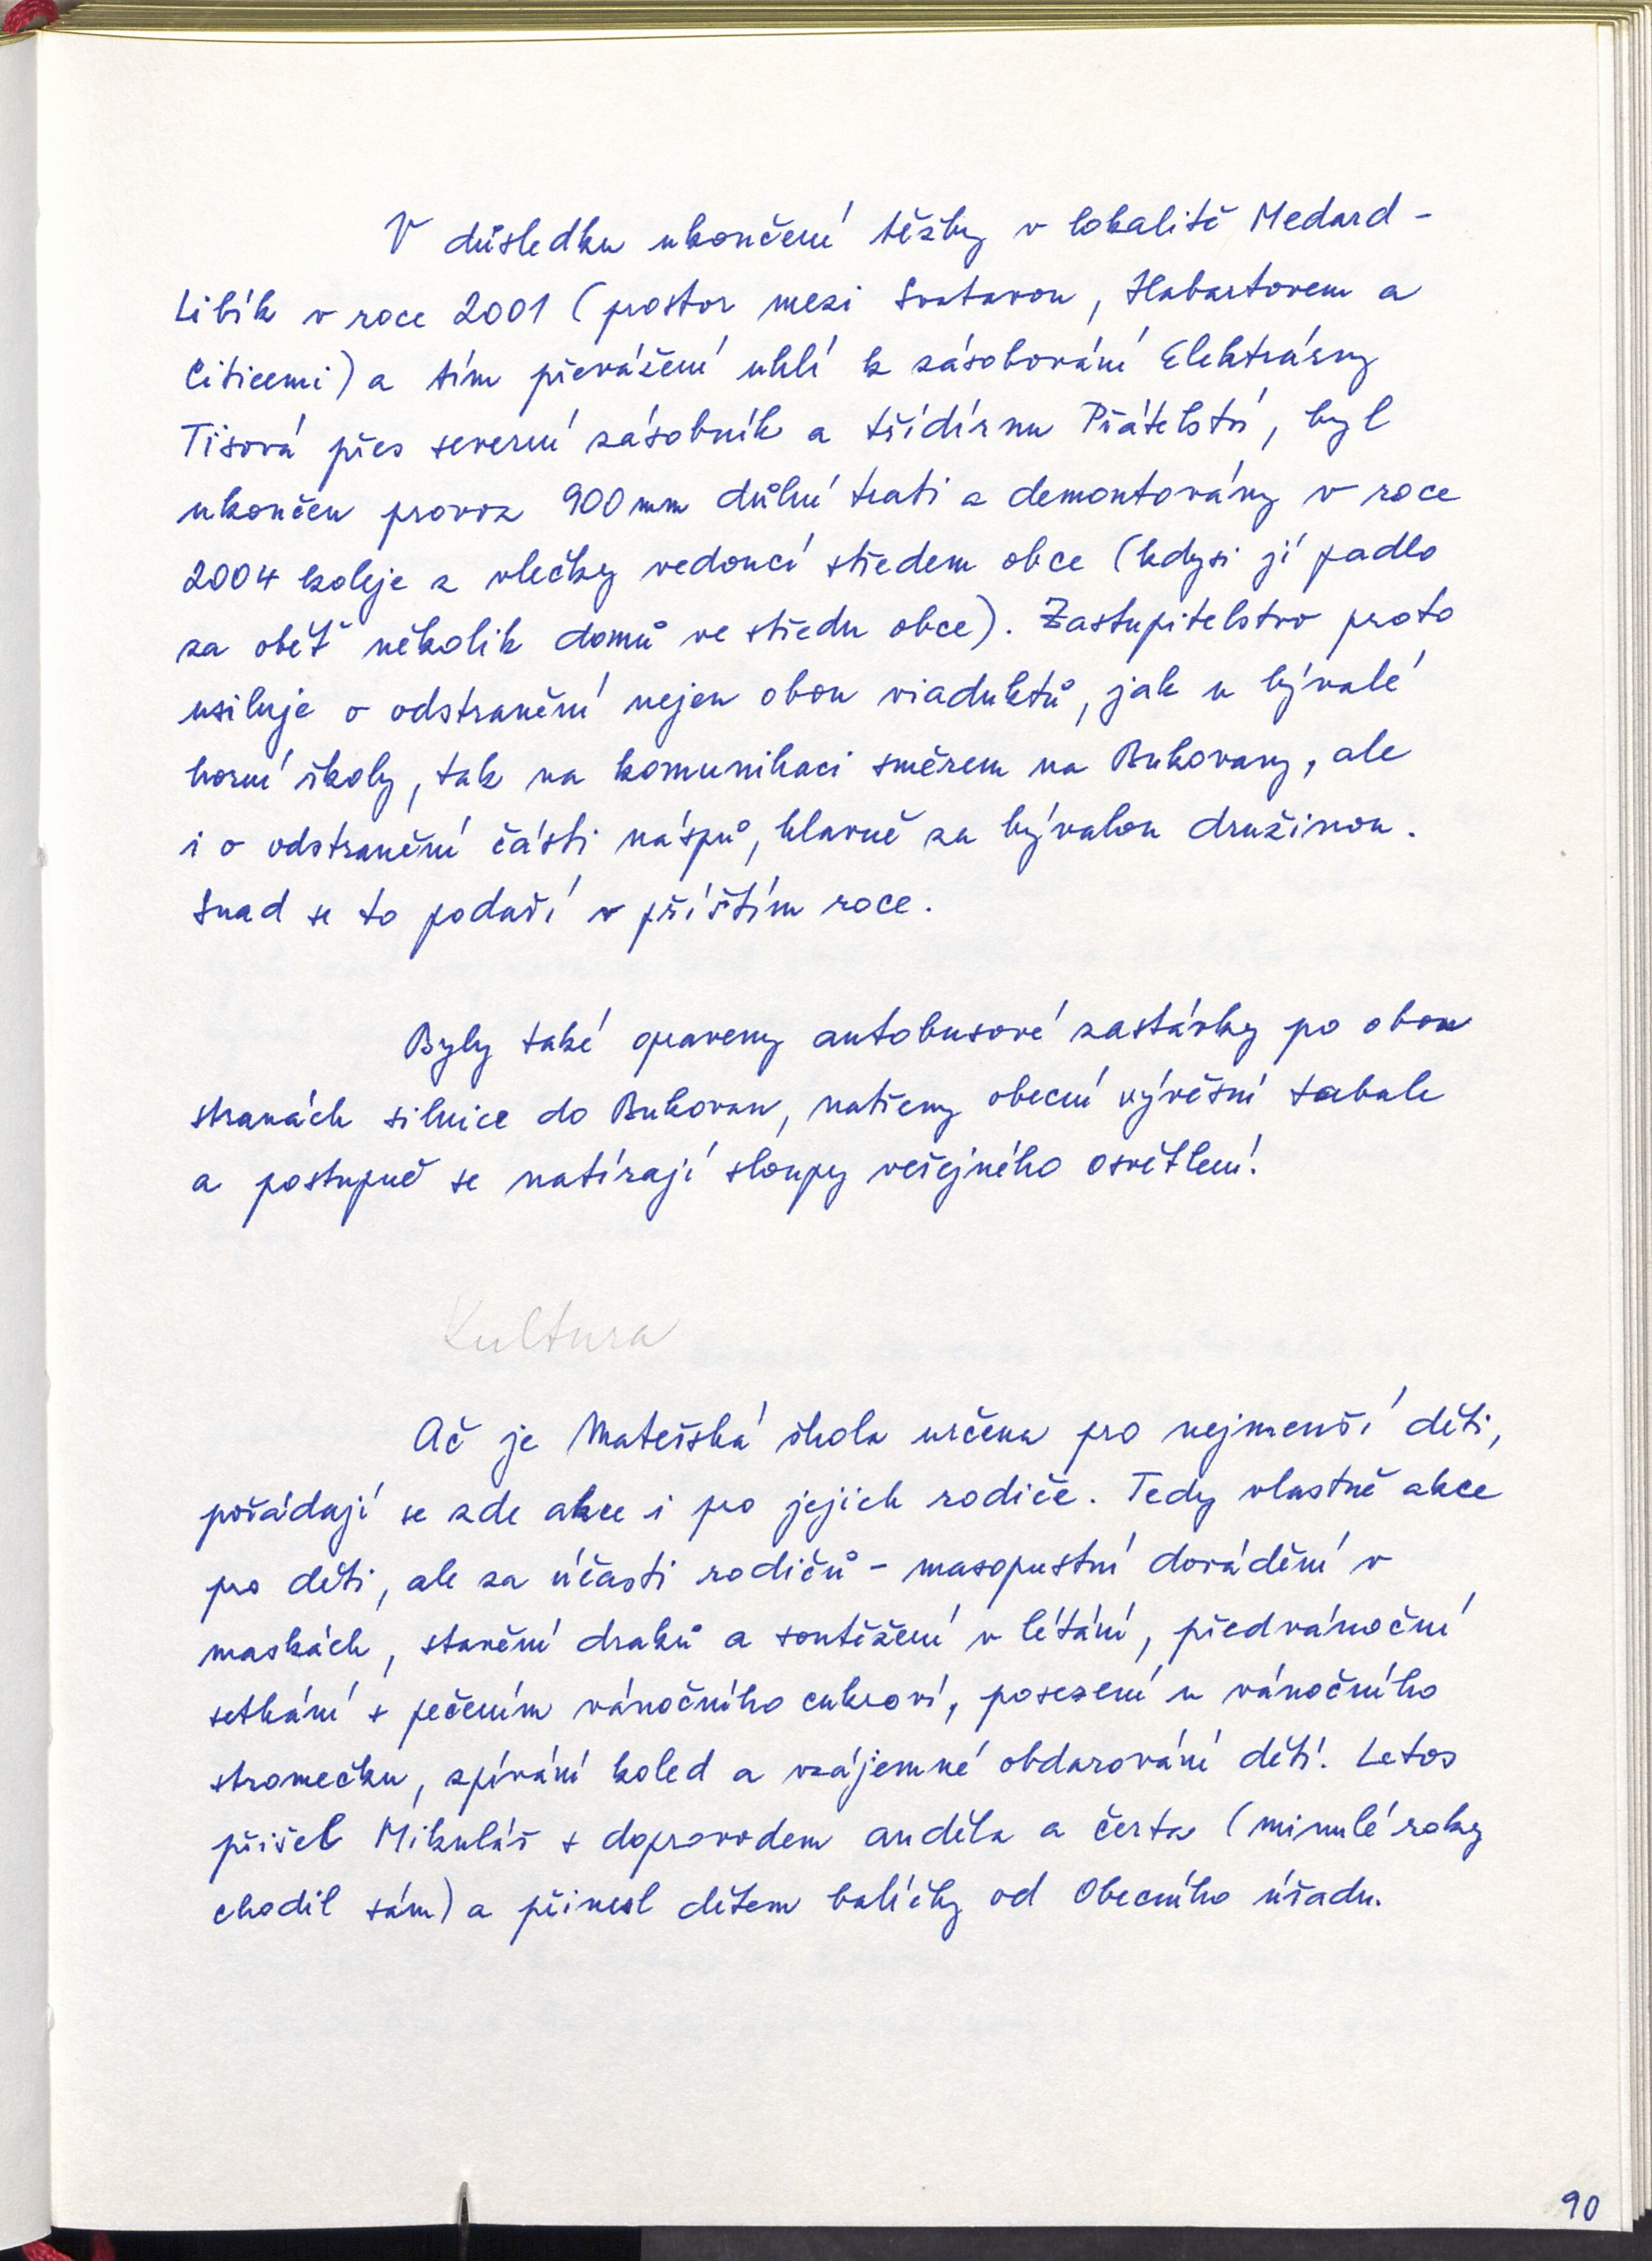 V důsledku ukončení těžby v lokalitě Medard -
Libík v roce 2001 (prostor mezi Svatavou, Habartovem a
Citicemi) a tím převážení uhlí k zásobování Elektrárny
Tisová přes severní zásobník a třídírnu Přátelství, byl
ukončen provoz 900 mm důlní trati a demontovány v roce
2004 koleje z vlečky vedoucí středem obce (kdysi jí padlo
za oběť několik domů ve středu obce). Zastupitelstvo proto
usiluje o odstranění nejen obou viaduktů, jak u bývalé
horní školy, tak na komunikaci směrem na Bukovany, ale
i o odstranění části náspů, hlavně za bývalou družinou.
Snad se to podaří v příštím roce.
Byly také opraveny autobusové zastávky po obou
stranách silnice do Bukovan, natřeny obecní vývěsní tabule
a postupně se natírají sloupy veřejného osvětlení.
Kultura
Ač je Mateřská škola určena pro nejmenší děti,
pořádají se zde akce i pro jejich rodiče. Tedy vlastně akce
pro děti, ale za účasti rodičů - masopustní dovádění v
maskách, stavění draků a soutěžení v létání, předvánoční
setkání s pečením vánočního cukroví, posezení u vánočního
stromečku, zpívání koled a vzájemné obdarování dětí. Letos
přišel Mikuláš s doprovodem anděla a čerta (minulé roky
chodil sám) a přinesl dětem balíčky od Obecního úřadu.
90